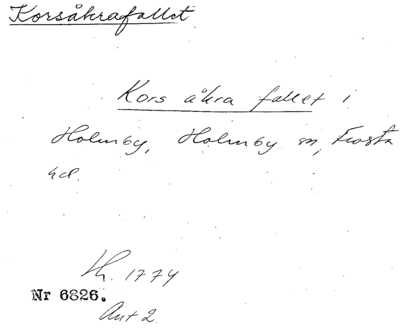 Korsåkrafallet
Kors åkra fallet i
Holmby, Holmby sn, Frosta
hd.
Lh. 1774
Nr 6826.
Akt 2